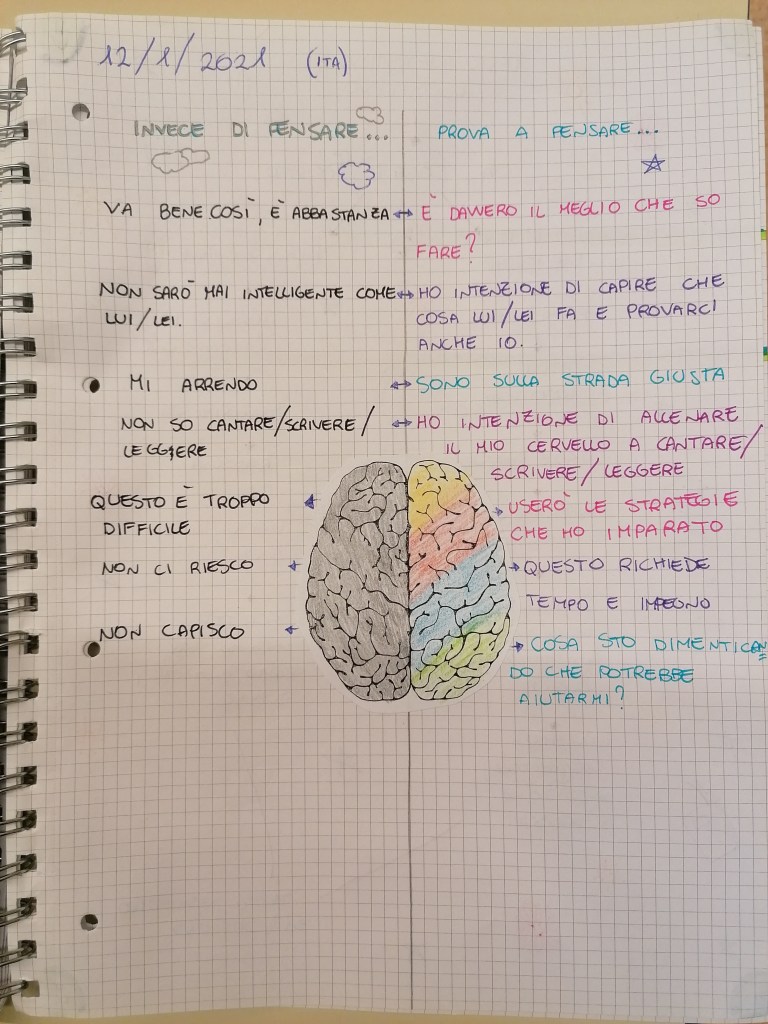 12/1/2021 (ITA)
INVECE DI PENSARE...
PROVA A PENSARE...
VA BENE COSÌ, È ABBASTANZA ↔ È DAVVERO IL MEGLIO CHE SO
FARE?
NON SARÒ MAI INTELLIGENTE COME ↔ HO INTENZIONE DI CAPIRE CHE
LUI/LEI.
COSA LUI/LEI FA E PROVARCI
ANCHE IO.
MI ARRENDO ↔ SONO SULLA STRADA GIUSTA
NON SO CANTARE/SCRIVERE/ ↔ HO INTENZIONE DI ALLENARE
LEGGERE
IL MIO CERVELLO A CANTARE/
SCRIVERE/LEGGERE
QUESTO È TROPPO
DIFFICILE
USERÒ LE STRATEGIE
CHE HO IMPARATO
NON CI RIESCO
QUESTO RICHIEDE
TEMPO E IMPEGNO
NON CAPISCO
COSA STO DIMENTICAN
DO CHE POTREBBE
AIUTARMI?